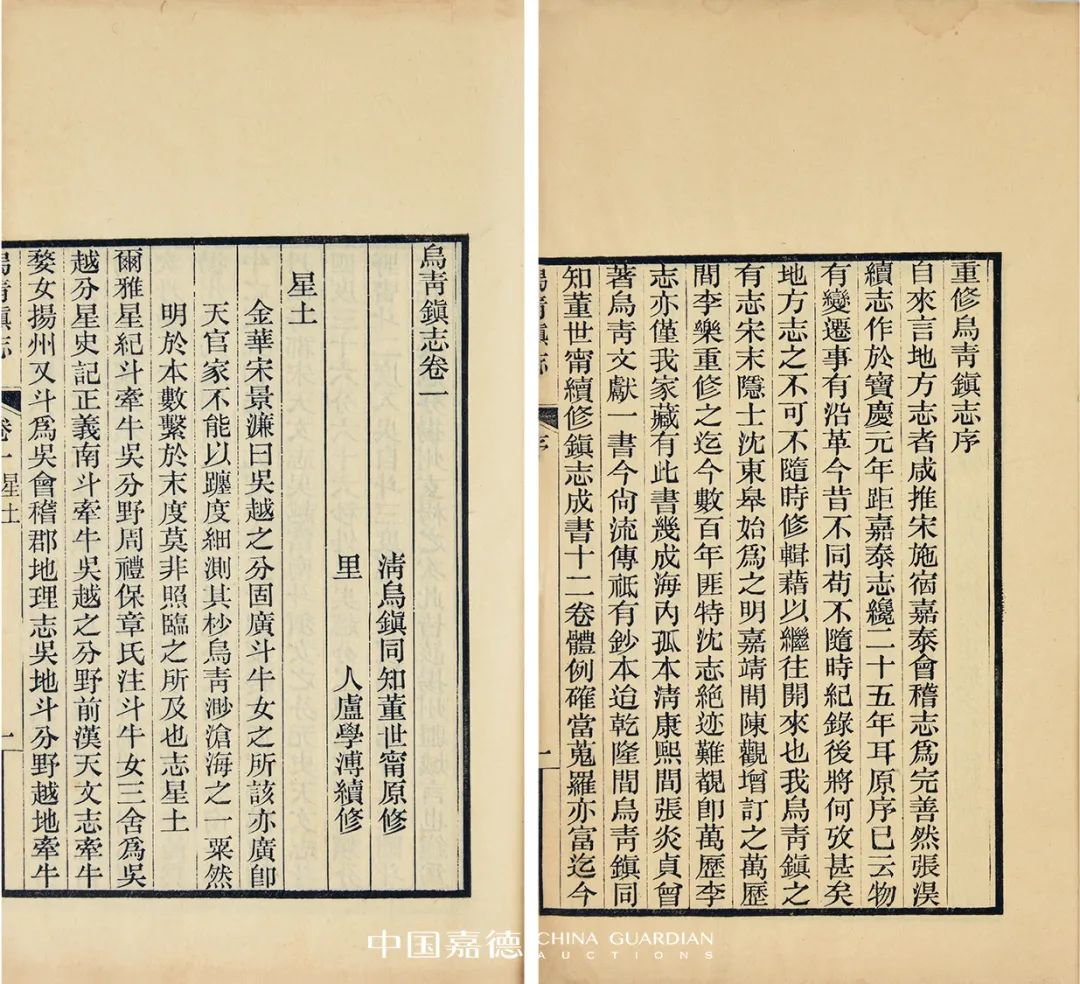 重修烏青鎮志序
自來言地方志者咸推宋施宿嘉泰會稽志爲完善然張淏
續志作於寶慶元年距嘉泰志纔二十五年耳原序已云物
有變遷事有沿革今昔不同苟不隨時紀錄後將何攷甚矣
地方志之不可不隨時修輯藉以繼往開來也我烏青鎮之
有志宋末隱士沈東皋始爲之明嘉靖間陳觀增訂之萬歷
間李樂重修之迄今數百年匪特沈志絶迹難覩卽萬歷李
志亦僅我家藏有此書幾成海內孤本淸康熙間張炎貞曾
著烏青文獻一書今尙流傳祗有鈔本迨乾隆間烏青鎮同
知董世甯續修鎮志成書十二卷體例確當蒐羅亦富迄今
烏青鎮志 序 一
烏青鎮志卷一
淸烏鎮同知董世甯原修
里 人盧學溥續修
星土
金華宋景濂曰吳越之分固廣斗牛女之所該亦廣卽
天官家不能以躔度細測其杪烏青渺滄海之一粟然
明於本數繫於末度莫非照臨之所及也志星土
爾雅星紀斗牽牛吳分野周禮保章氏注斗牛女三舍爲吳
越分星史記正義南斗牽牛吳越之分野前漢天文志牽牛
婺女揚州又斗爲吳會稽郡地理志吳地斗分野越地牽牛
烏青鎮志 卷一 星土 一
中国嘉德 CHINA GUARDIAN
AUCTIONS